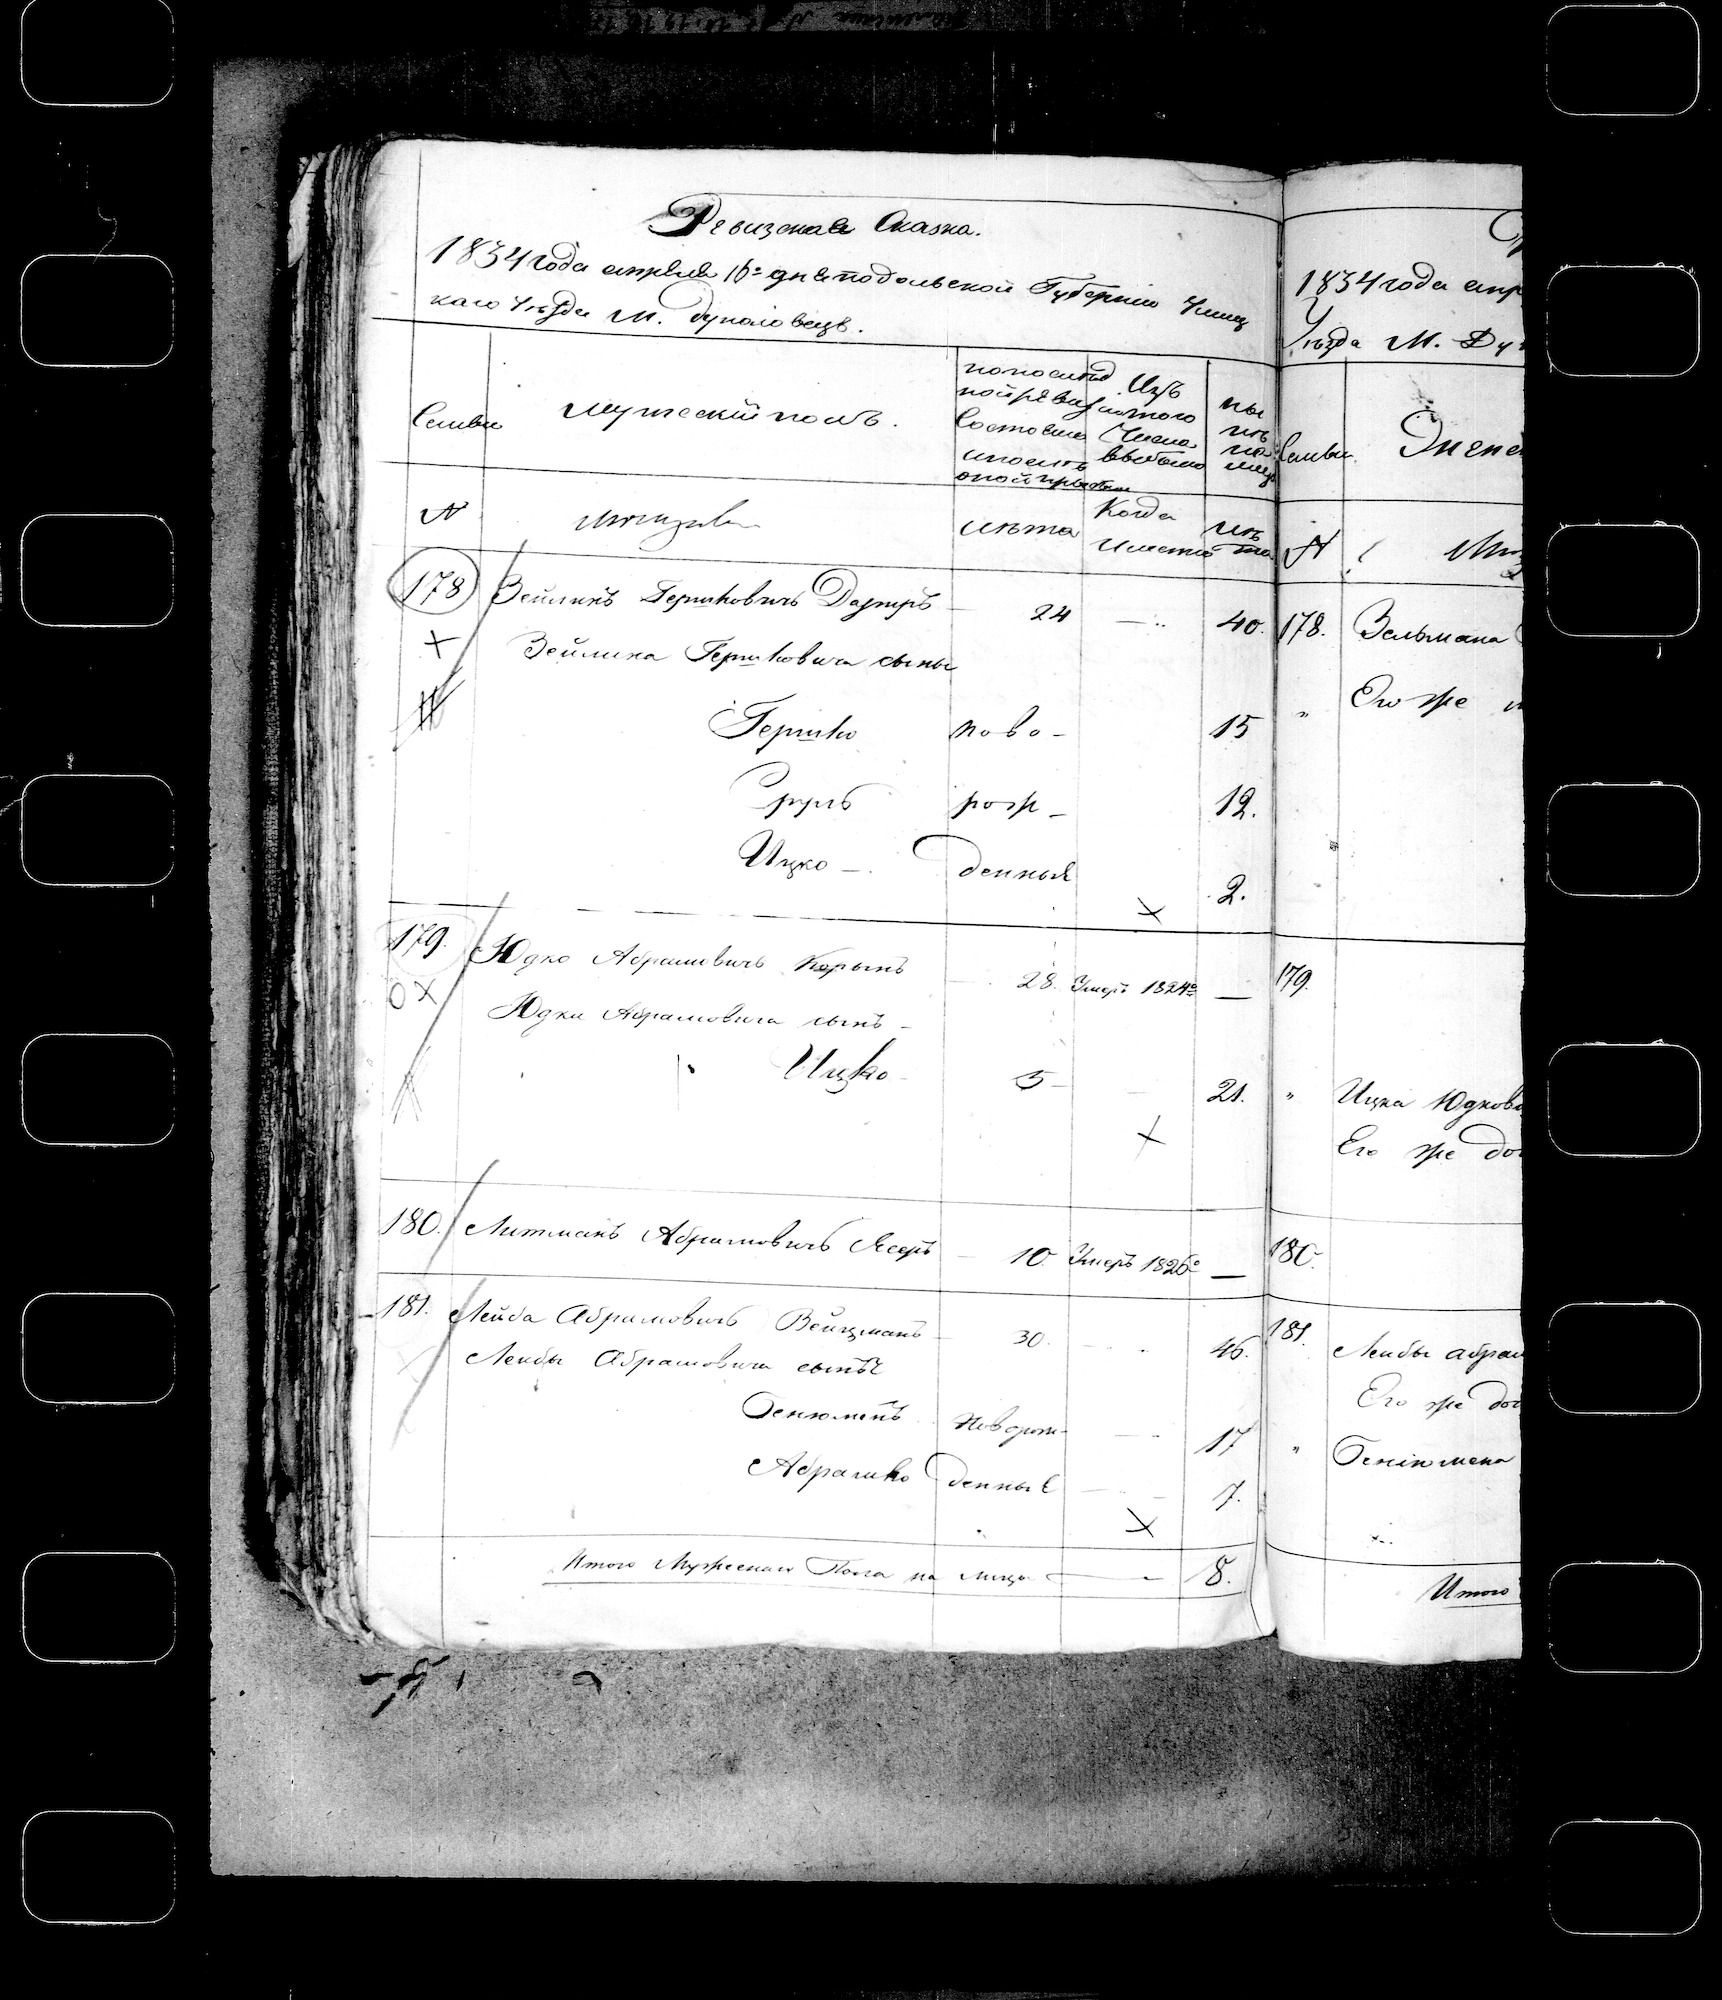 Ревизская Сказка.
1834 года апреля 16го дня подольской Губернии Ушиц
каго Уѣзда М. Дунаіовецъ.
Семьи
Мужескій полъ.
по послѣд
ней ревизіи
состояло
и послѣ
оной прибыло
Изъ
того
Числа
выбыло
ны
нѣ
на
лицо
№
лѣта
Когда
имянно
лѣ
та
178
Зейликъ Гершковичъ
24
40.
Зейлика Гершковича сыны
Гершко ново- 15
Сруль рож- 12.
Ицко - денныя 2.
179.
Юдко Абрамовичъ
28. Умеръ 1824го —
Юдки Абрамовича сынъ -
Ицко - 5 - 21.
180. Литманъ Абрамовичъ
10. Умеръ 1826го —
181. Лейба Абрамовичъ Вейцманъ 30. 46.
Лейбы Абрамовича сынъ
Бенюменъ Новорож- 17
Абрамко денные 7.
Итого Мужескаго Пола на лицо — 8.
1834 года апр
Уѣзда М. Ду
Семьи.
Женс
№
178.
Зельмана
" Его же
179.
" Ицка Юдкови
Его же доч
180.
181.
Лейбы абрам
Его же доч
" Бенюмена
Итого